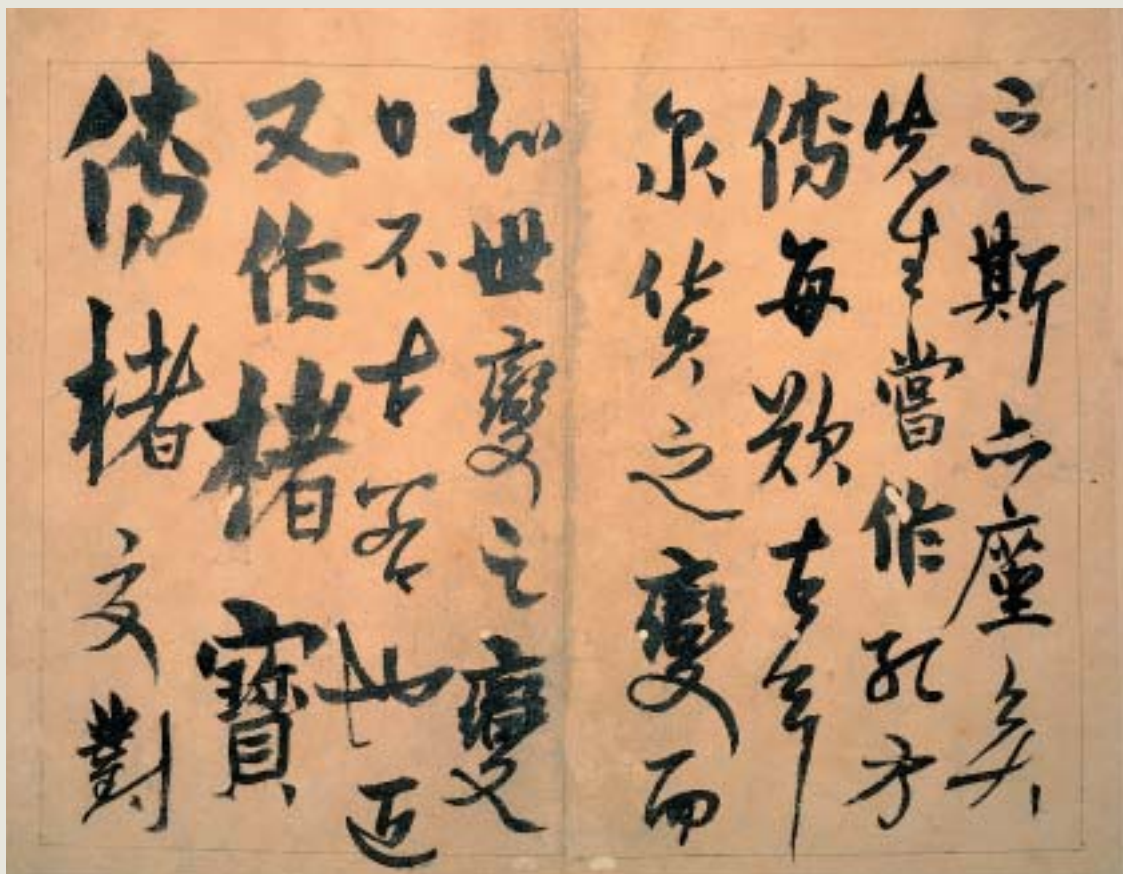 之斯亦塵矣
先生嘗作孔方
傳每歎古今
泉貨之變而
知世變之變
日不古若也近
又作楮寶
傳楮文對